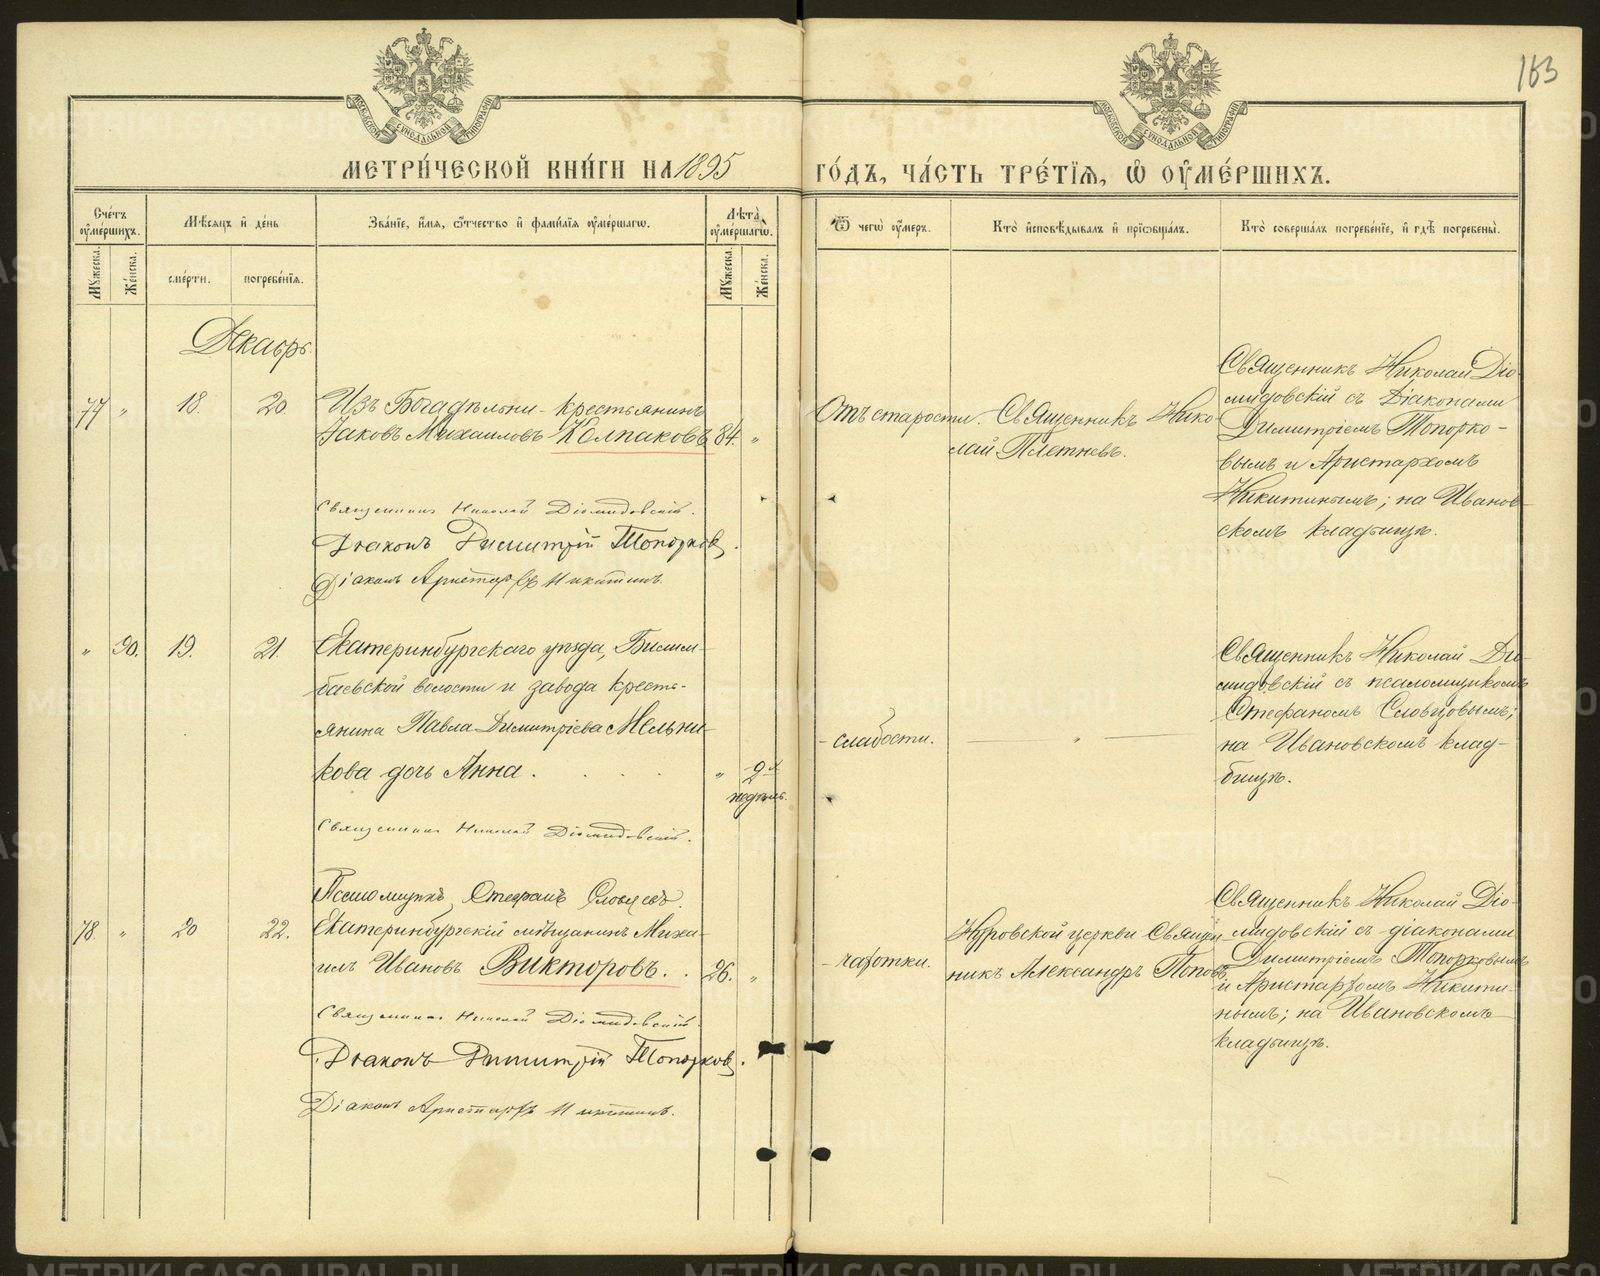 163
МОСКОВСКОЙ СѴНОДАЛЬНОЙ ТИПОГРАФІИ
МОСКОВСКОЙ СѴНОДАЛЬНОЙ ТИПОГРАФІИ
МЕТРИ́ЧЕСКОЙ КНИ́ГИ НА 1895 ГО́ДЪ, ЧА́СТЬ ТРЕ́ТІѦ, Ѡ҆ ОУ҆МЕ́РШИХЪ.
Сче́тъ оу҆ме́ршихъ.
Мꙋ́жеска.
Же́нска.
Мѣ́сѧцъ и҆ де́нь
сме́рти.
погребе́нїѧ.
Зва́нїе, и҆́мѧ, ѻ҆́тчество и҆ фами́лїѧ оу҆ме́ршагѡ.
Лѣ́та оу҆ме́ршагѡ.
Мꙋ́жеска.
Же́нска.
Ѿ чегѡ̀ оу҆́меръ.
Кто̀ и҆сповѣ́дывалъ и҆ прїѡбща́лъ.
Кто̀ соверша́лъ погребе́нїе, и҆ гдѣ̀ погребены̀.
Декабрь
77 " 18. 20.
Изъ Богадѣльни - крестьянинъ
Іаковъ Михаиловъ Колпаковъ 84. "
Священникъ Николай Діомидовскій.
Діаконъ Димитрій Топорковъ.
Діаконъ Аристархъ Никитинъ.
Отъ старости.
Священникъ Нико-
лай Плетневъ.
Священникъ Николай Діо-
мидовскій съ Діаконами
Димитріемъ Топорко-
вымъ и Аристархомъ
Никитинымъ; на Иванов-
скомъ кладбищѣ.
" 90. 19. 21.
Екатеринбургскаго уѣзда, Билим-
баевской волости и завода кресть-
янина Павла Димитріева Мельни-
кова дочь Анна. " 2
недѣль.
Священникъ Николай Діомидовскій.
Псаломщикъ Стефанъ Словцовъ.
- слабости.
"
Священникъ Николай Діо-
мидовскій съ псаломщикомъ
Стефаномъ Словцовымъ;
на Ивановскомъ клад-
бищѣ.
78. " 20 22.
Екатеринбургскій мѣщанинъ Миха-
илъ Ивановъ Викторовъ. 26. "
Священникъ Николай Діомидовскій.
Діаконъ Димитрій Топорковъ.
Діаконъ Аристархъ Никитинъ.
- чахотки.
церкви Священ-
никъ Александръ Поповъ.
Священникъ Николай Діо-
мидовскій съ діаконами
Димитріемъ Топорковымъ
и Аристархомъ Никити-
нымъ; на Ивановскомъ
кладбищѣ.
METRIKI.GASO-URAL.RU